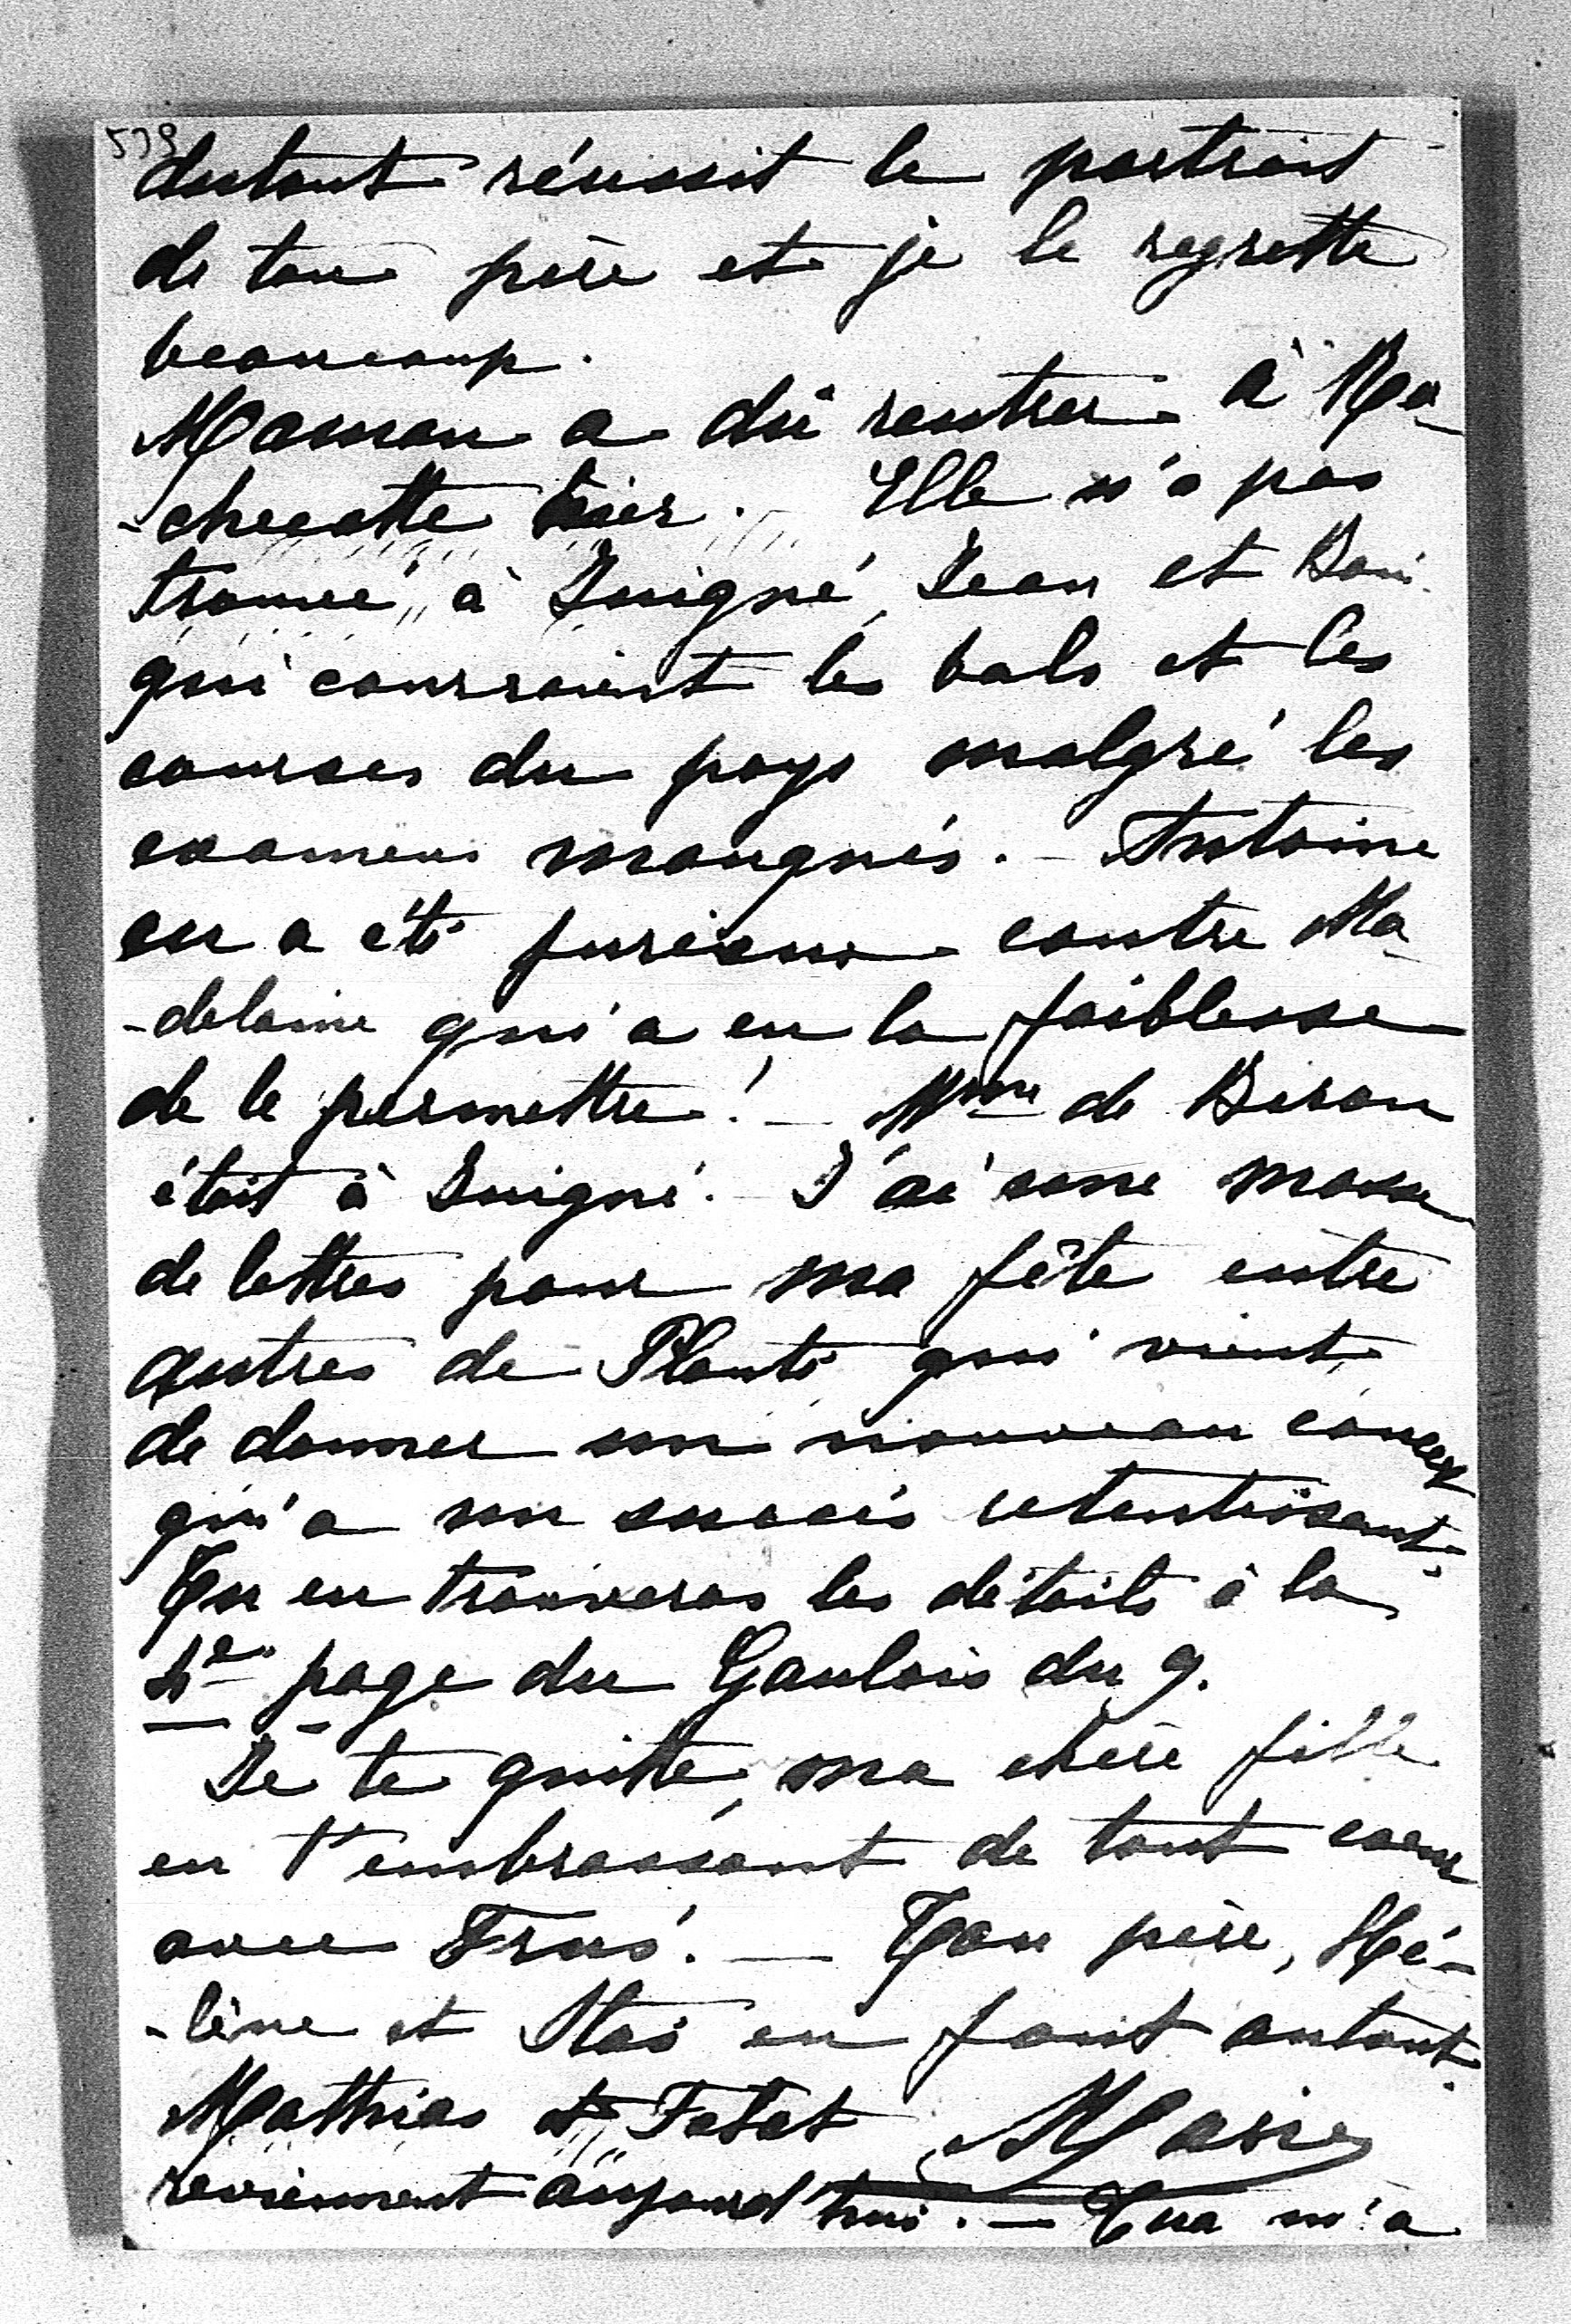 579
dutout réussit le portrait
de ton père et je le regrette
beaucoup.
Maman a dû rentrer à Ro-
-checotte hier. Elle n'a pas
trouvé, à Juigné, Jean et Boni
qui couraient les bals et les
courses du pays malgré les
examens manqués. - Antoine
en a été furieux contre Ma-
-delaine qui a eu la faiblesse
de le permettre! - Mme de Biron
était à Juigné. - J'ai une masse
de lettres pour ma fête entre
autres de Planté qui vient
de donner un nouveau concert
qui a un succès retentissant.
Tu en trouveras les détails à la
4e page du Gaulois du 9.
Je te quitte, ma chère fille
en t'embrassant de tout coeur
avec - Ton père, Hé-
-lène et Stas en font autant.
Mathias et
reviennent aujourd'hui. - m'a
Marie